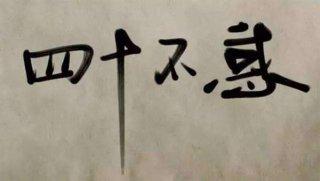 四十不惑